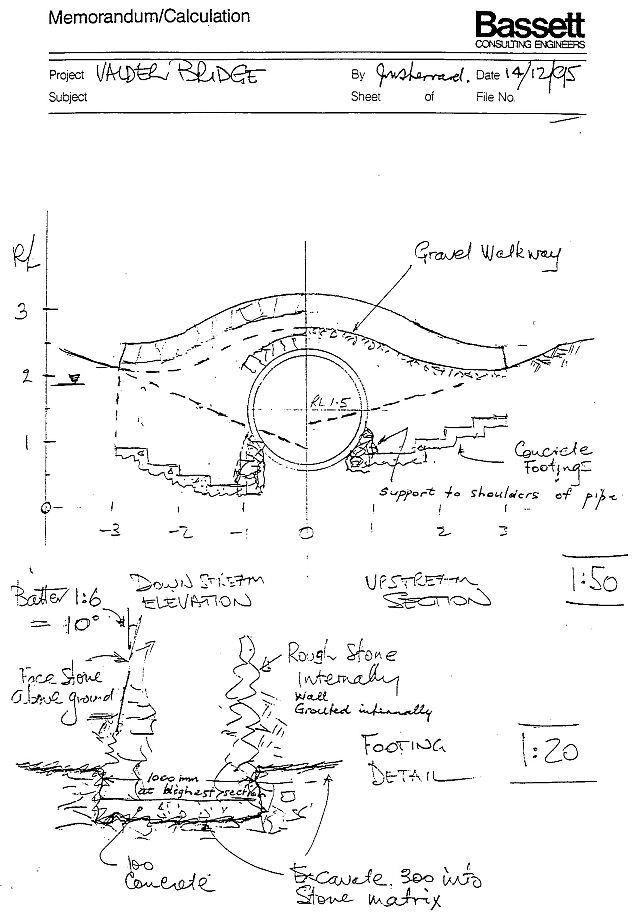 Memorandum/Calculation
Bassett
CONSULTING ENGINEERS
Project VALDER BRIDGE By Date 14/12/95
Subject Sheet of File No.
RL
Gravel Walkway
3
2
RL 1.5
1
Concrete
Footings
support to shoulders of pipe
0
-3 -2 -1 0 1 2 3
DOWNSTREAM
ELEVATION
UPSTREAM
SECTION
1:50
Batter 1:6
= 10°
Face Stone
above ground
Rough Stone
Internally
Wall
Grouted internally
FOOTING
DETAIL
1:20
1000 mm
at highest section
100
Concrete
Excavate 300 into
Stone matrix